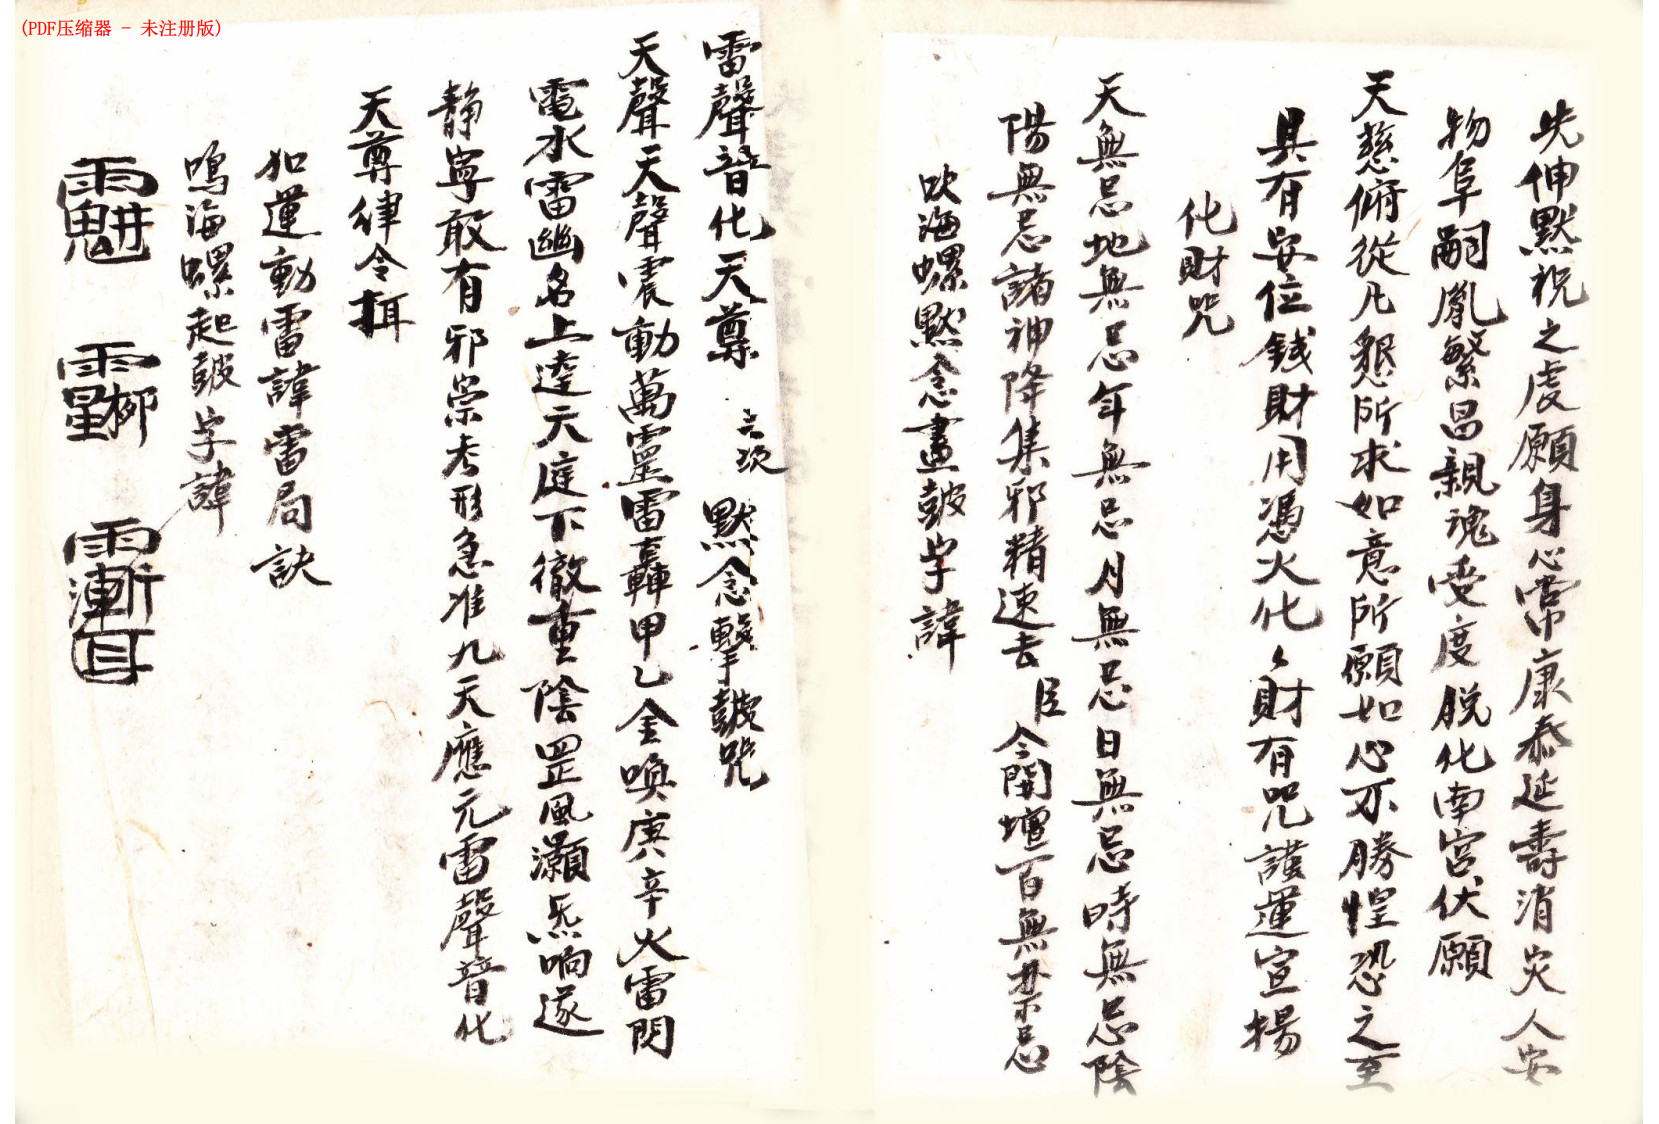 (PDF压缩器 - 未注册版)
先伸默祝之虔願身心常康泰延壽消灾人安
物阜嗣胤繁昌親魂受度脱化南宫伏願
天慈俯從凡懇所求如意所願如心不勝惶恐之至
具有安位錢財用憑火化〻財有咒謹運宣揚
化財咒
天無忌地無忌年無忌月無忌日無忌時無忌陰
陽無忌諸神降集邪精速去臣今開壇百無禁忌
吹海螺默念畫鼓字諱
雷聲普化天尊 三次 默念擊鼓咒
天聲天聲震動萬靈雷轟甲乙金喚庚辛火雷閃
電水雷幽名上達天庭下徹重陰罡風灝炁响遂
静寧敢有邪祟考形急准九天應元雷聲普化
天尊律令
如運動雷諱雷局訣
鳴海螺起鼓字諱